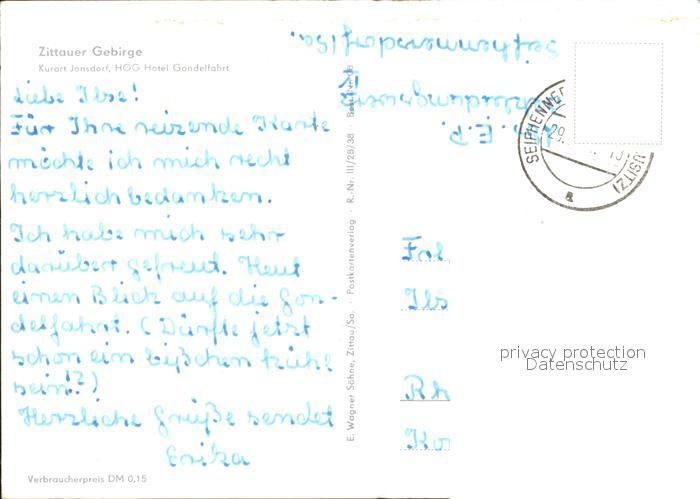 Zittauer Gebirge
Kurort Jonsdorf, HOG Hotel Gondelfahrt
Liebe Ilse!
Für Ihre reizende Karte
möchte ich mich recht
herzlich bedanken.
Ich habe mich sehr
darüber gefreut. Heut
einen Blick auf die Gon-
delfahrt. (Dürfte jetzt
schon ein bißchen kühl
sein!?)
Herzliche Grüße sendet
Erika
Verbraucherpreis DM 0,15
E. Wagner Söhne, Zittau/Sa. · Postkartenverlag · R.-Nr. III/28/38
Seifhennersdorf/Sa.
E. P.
SEIFHENNER
29.
USITZ)
a
Frl
Ils
Rh
Ko
privacy protection
Datenschutz